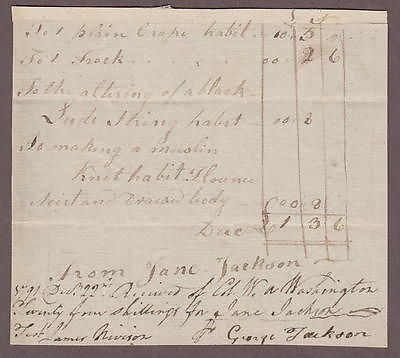 To 1 plain Crape habit .. 00 .. 5 .. 0
To 1 Frock . . . . . 00 .. 2 6
To the altering of a black
Lude String habit 00 .. 2
To making a muslin
Knet habit Flounce
Skirt and Drawd body 00 .. 8
Due £ 1 3 6
from Jane Jackson
Dec 22nd Received of Col W. A Washington
Twenty four shillings for Jane Jackson
Test James Nivison Pr George Jackson